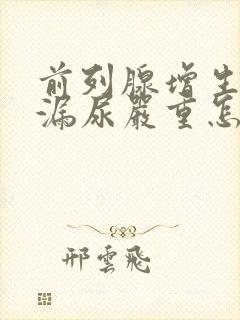 前列腺增生
漏尿嚴重怎
邢雲飛